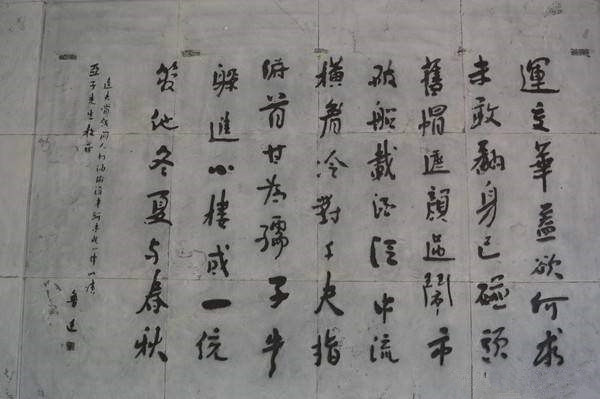 運交華蓋欲何求
未敢翻身已碰頭
舊帽遮顏過鬧市
破船載酒泛中流
橫眉冷對千夫指
俯首甘為孺子牛
躲進小樓成一統
管他冬夏与春秋
達夫賞飯閒人打油偷得半聯湊成一律以請
亞子先生教正
魯迅